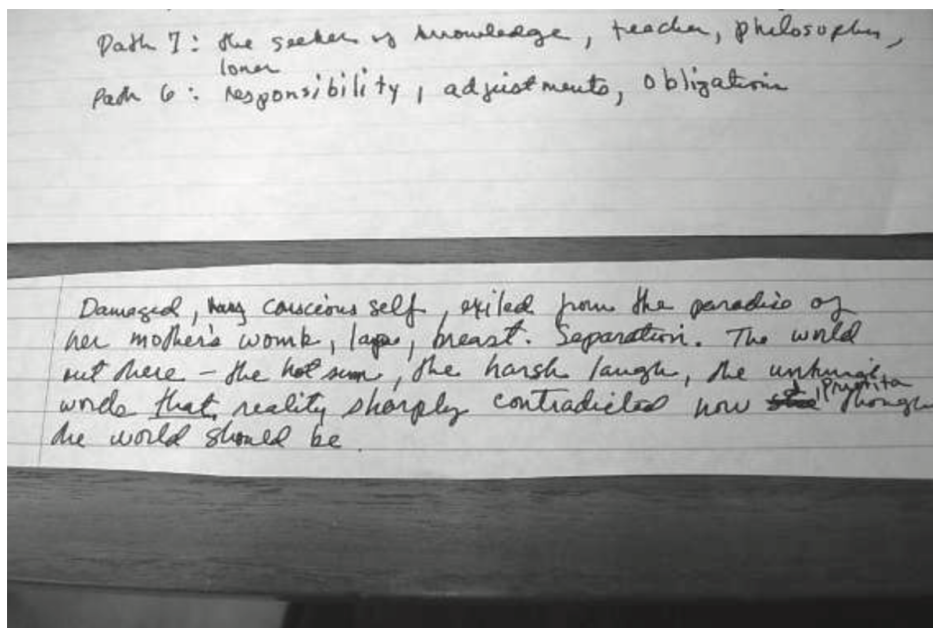 Path 7: the seeker of knowledge, teacher, philosopher,
loner
Path 6: responsibility, adjustments, obligations
Damaged, conscious self, exiled from the paradise of
her mother's womb, breast. Separation. The world
out there – the hot sun, the harsh laugh, the
words that reality sharply contradicted how Prietita thought
the world should be.